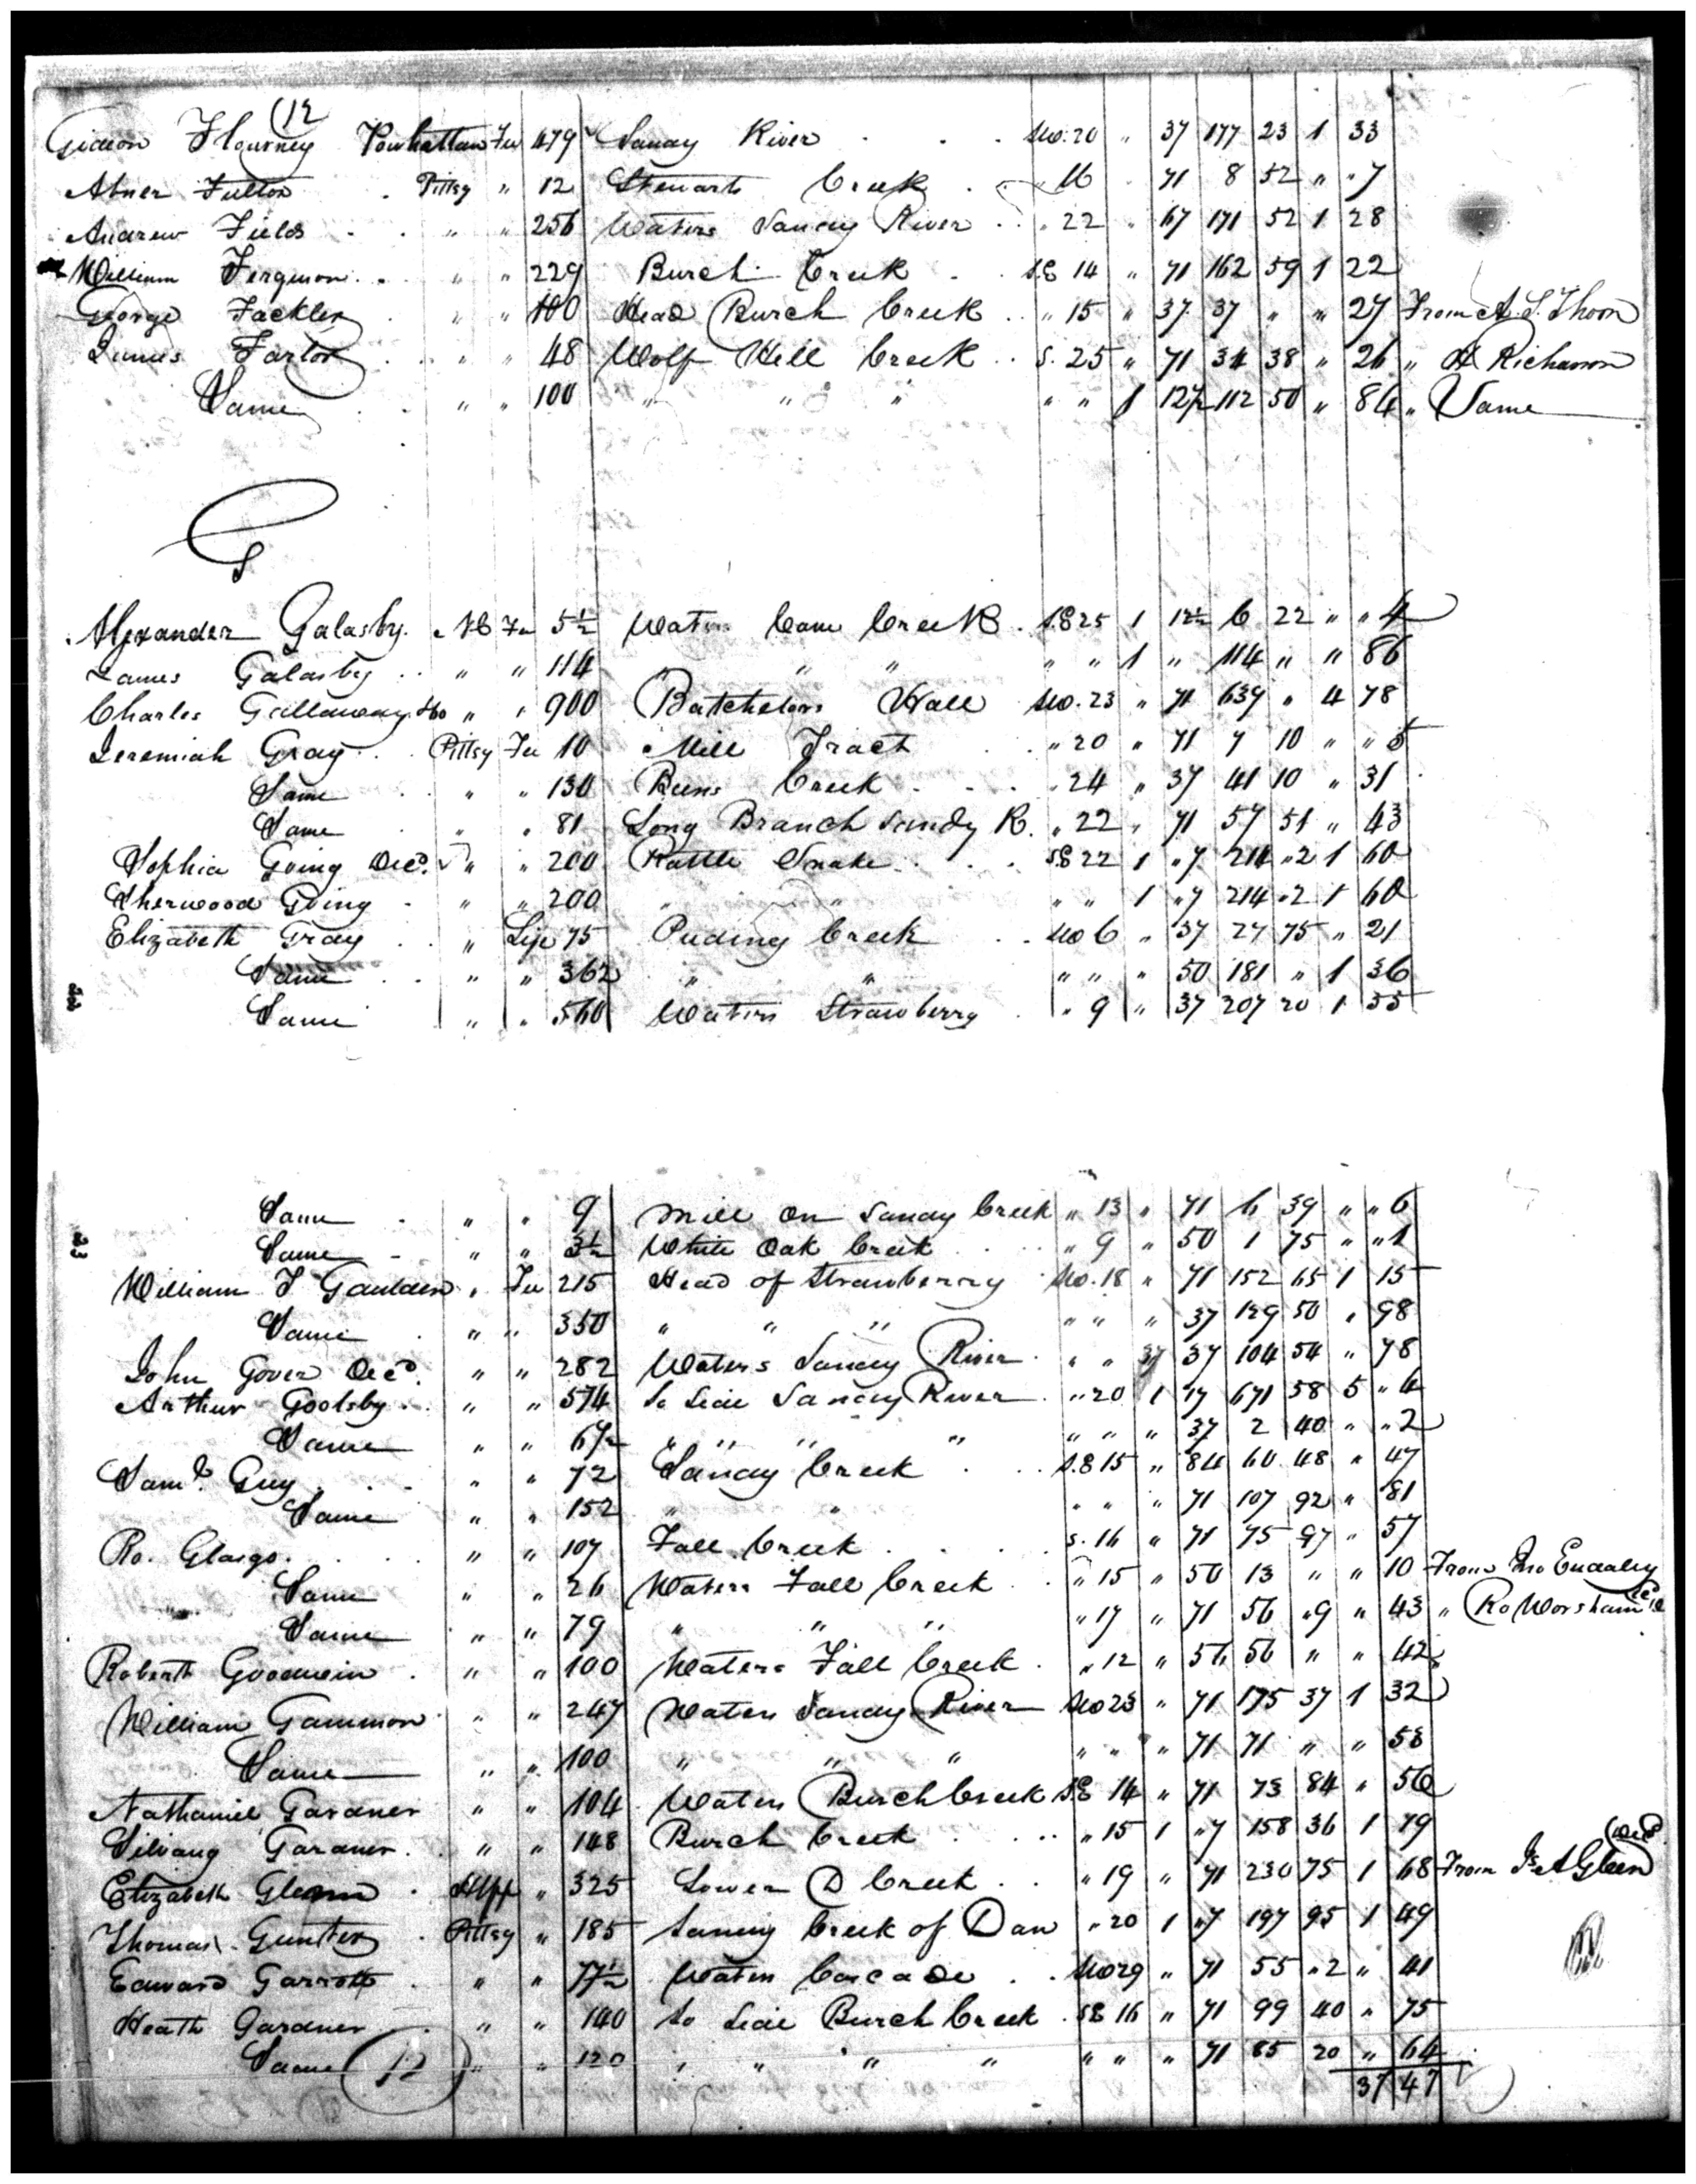 (12
Gideon Flourney Powhattan Fee 479 Sandy River . . . No. 20 " 37 177 23 1 33
Abner Fulton . Pittsy " 12 Stewarts Creek . . " 16 71 8 52 " " 7
Andrew Fields . . " " 256 Waters Sandy River . . " 22 " 67 171 52 1 28
William Ferguson . . " " 229 Burch Creek . . S.E 14 " 71 162 59 1 22
George Fackler . " " 100 Head Burch Creek . . " 15 " 37 37 " " 27 From A. S. Thorn
James Farlor . . " " 48 Wolf Hill Creek . . S. 25 " 71 34 38 " 26 " Richason
Same . . " " 100 " " " " " 1 12½ 112 50 " 84 " Same
G
Alexander Galasby . NC Fee 5½ Waters Cane Creek . S.E 25 1 12½ 6 22 " " 4
James Galasby . . " " 114 " " " " " 1 " 114 " " " 86
Charles Gallaway & Co " " 900 Batchelors Hall No. 23 " 71 639 " 4 78
Jeremiah Gray . . Pittsy Fee 10 Mill Tract . . " 20 " 71 7 10 " " 5
Same . . " " 130 Creek . . . " 24 " 37 41 10 " 31
Same . " " 81 Long Branch Sandy R. " 22 " 71 57 51 " 43
Sophia Going Decd. " " 200 Rattle Snake . . . S.E 22 1 " 7 214 " 2 1 60
Sherwood Going . " " 200 " " " " 1 " 7 214 " 2 1 60
Elizabeth Gray . . " Life 75 Puding Creek . . No 6 " 37 27 75 " 21
Same . . " " 362 " " " " " 50 181 " 1 36
Same " " 560 Waters Strawberry . " 9 " 37 207 20 1 55
Same . " " 9 Mill on Sandy Creek " 13 " 71 6 39 " " 6
Same - " " 3½ White Oak Creek . . " 9 " 50 1 75 " " 1
William T Gaulden . " Fee 215 Head of Strawberry No. 18 " 71 152 65 1 15
Same . " " 350 " " " " " " 37 129 50 " 98
John Gover Decd. " " 282 Waters Sandy River . " " 37 104 54 " 78
Arthur Goolsby . . " " 574 So Side Sandy River . " 20 1 17 671 58 5 " 4
Same " " 6½ " " " " " " " 37 2 40 " " 2
Saml. Guy . . - " " 72 Sandy Creek . . . S.E 15 " 84 60 48 " 47
Same " " 152 " " " " " 71 107 92 " 81
Ro. Glasgo . . . . " " 107 Fall Creek . . . . S. 16 " 71 75 97 " 57
Same " " 26 Waters Fall Creek . . " 15 " 50 13 " " 10 From Jno Eudaley
Same " " 79 " " " " 17 " 71 56 " 9 " 43 " Ro Worsham
Roberth Goodwin . " " 100 Waters Fall Creek . " 12 " 56 56 " " 42
William Gammon " " 247 Waters Sandy River No 23 " 71 175 37 1 32
Same " " 100 " " " " " " 71 71 " " 53
Nathaniel Gardner " " 104 Waters Burch Creek S.E 14 " 71 73 84 " 56
Gardner . " " 148 Burch Creek . . . . " 15 1 " 7 158 36 1 19
Elizabeth Glenn . " 325 Lower D Creek . . " 19 " 71 230 75 1 68 From Js A Glenn Decd
Thomas Gunter . Pittsy " 185 Creek of Dan " 20 1 " 7 197 95 1 49
Edward Garrott . " " 77½ Waters Cascade . . No 29 " 71 55 " 2 " 41
Heath Gardner . " " 140 So Side Burch Creek . S.E 16 " 71 99 40 " 75
Same " " 120 " " " " " " " 71 85 20 " 64
(12) 37 47